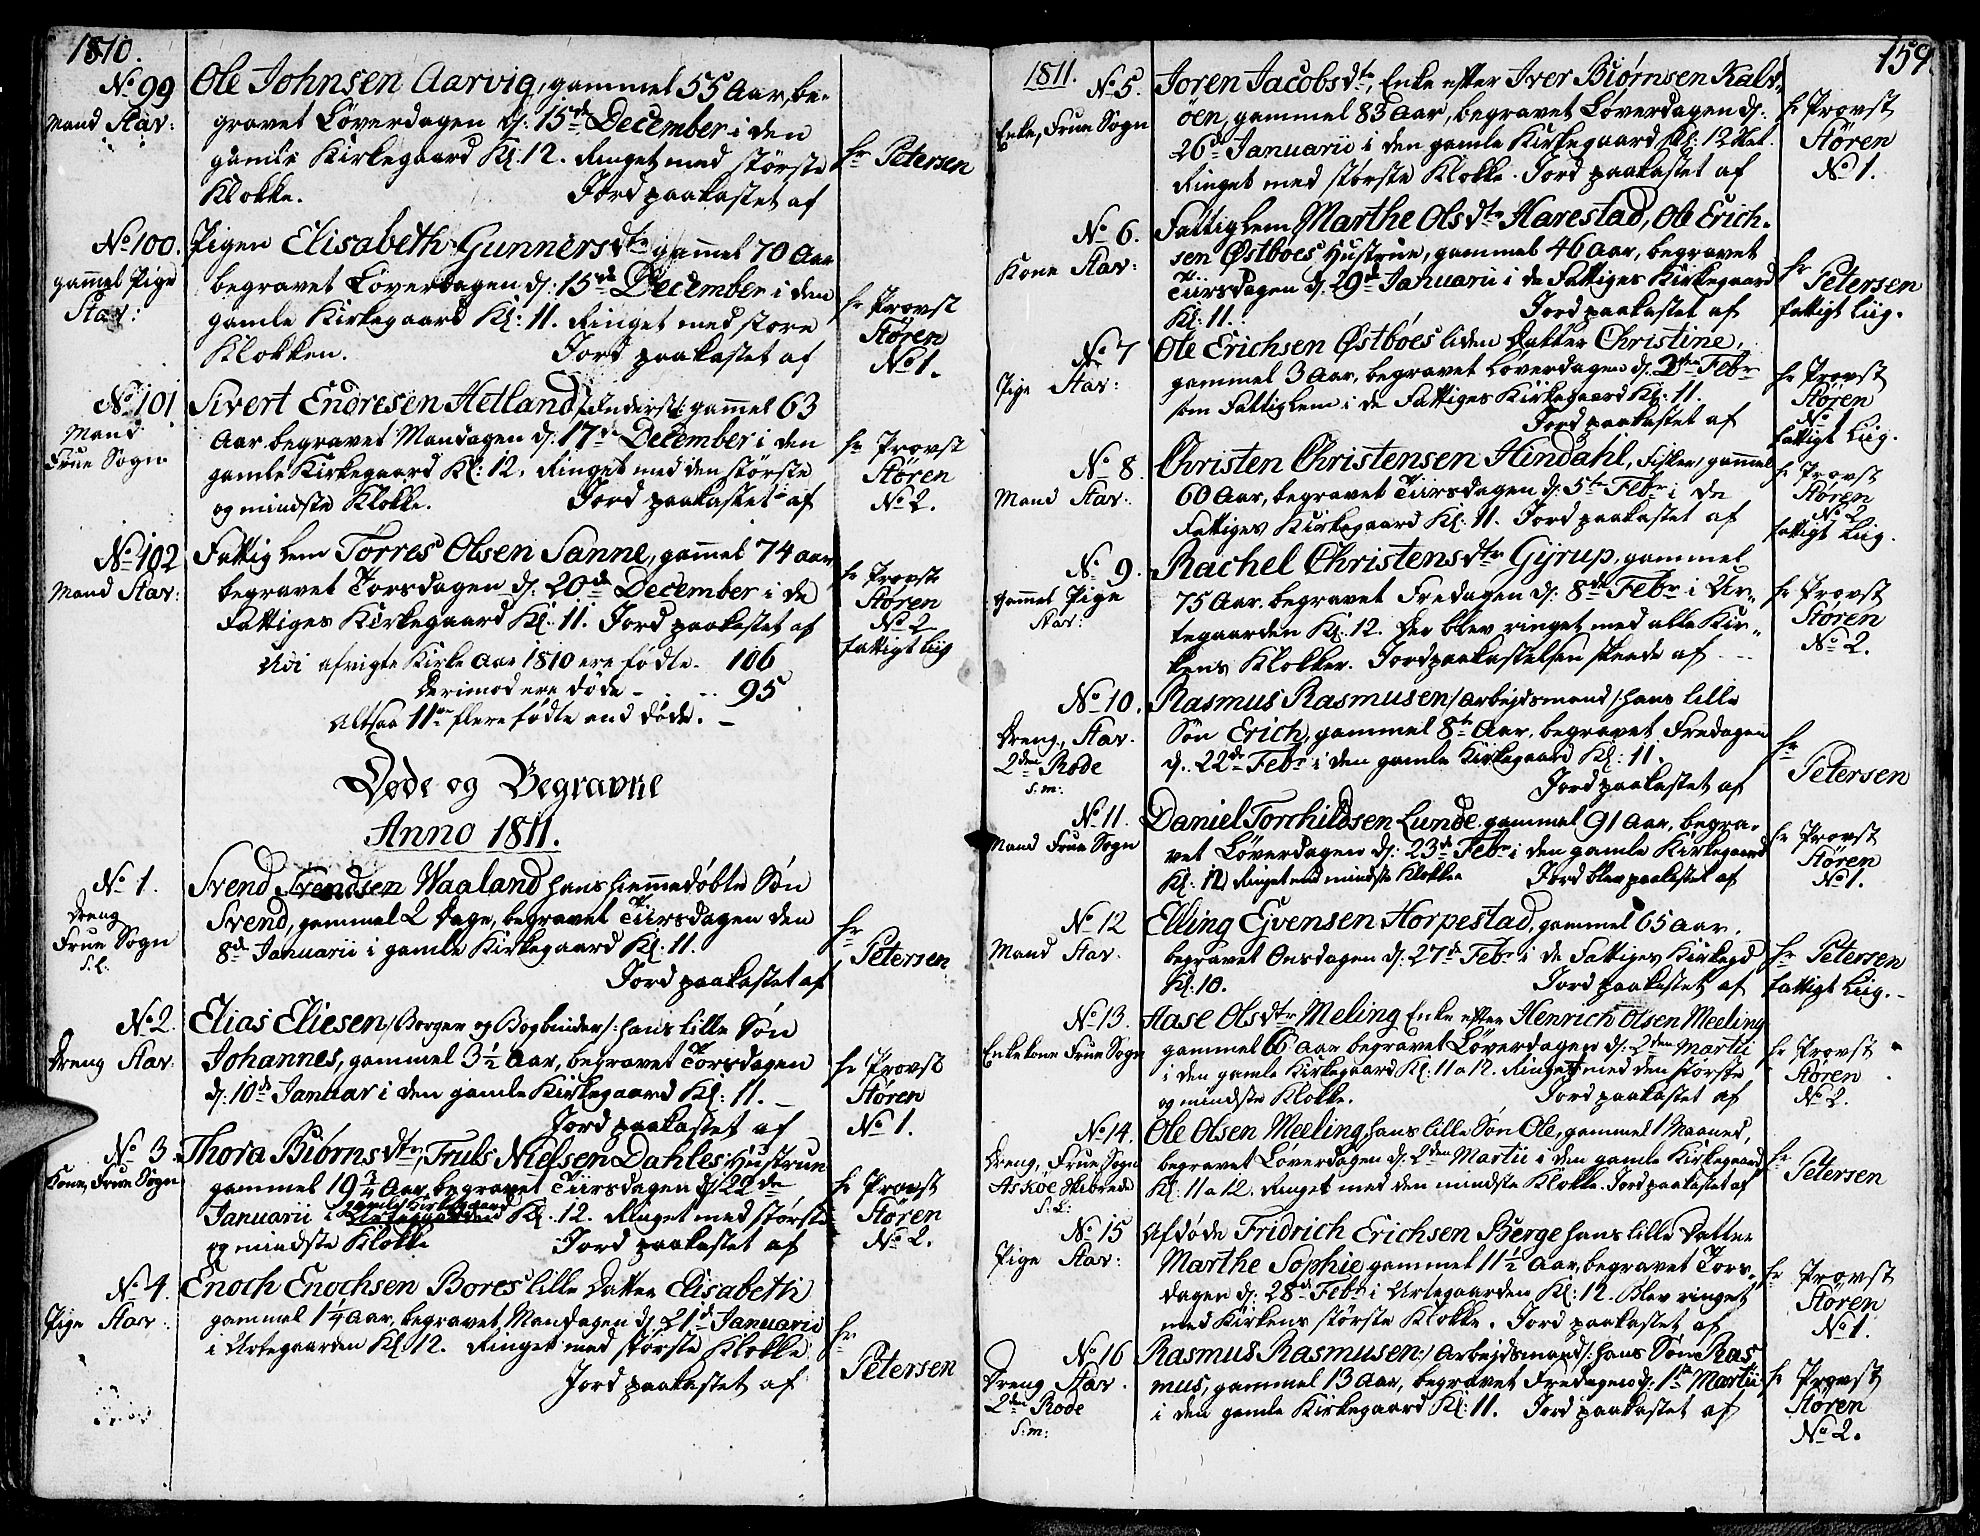 1810.
No 99
Mand Stav:
Ole Johnsen Aarvig, gammel 55 Aar, be-
gravet Løverdagen d: 15de December i den
gamle Kirkegaard Kl: 12. Ringet med største
Klokke. Jord paakastet af
Hr Petersen
No 100.
gamel Pige
Stav:
Pigen Elisabeth Gunnersdtr gamel 70 Aar
begravet Løverdagen d: 15de December i den
gamle Kirkegaard Kl: 11. Ringet med store
Klokken. Jord paakastet af
Hr Provst
Støren
No 1.
No 101
Mand
Frue Sogn
Sivert Endresen Hetland /:Inderst:/ gamel 63
Aar begravet Mandagen d: 17de December i den
gamle Kirkegaard Kl: 12. Ringet med den største
og mindste Klokke. Jord paakastet af
Hr Provst
Støren
No 2.
No 102
Mand Stav:
Fattiglem Torres Olsen Sanne, gamel 74 Aar
begravet Torsdagen d: 20de December i de
Fattiges Kirkegaard Kl: 11. Jord paakastet af
Hr Provst
Støren
No 2
fattigt Liig
Udi afvigte Kirke Aar 1810 ere fødte - 106
Derimod ere døde - - - 95
Altsaa 11ve flere fødte end døde. -
Døde og Begravne
Anno 1811.
No 1.
Dreng
Frue Sogn
S.L:
Svend Svendsen Waaland hans hiemmedøbte Søn
Svend, gammel 2 Dage, begravet Tiirsdagen den
8de Januarii i gamle Kirkegaard Kl: 11.
Jord paakastet af
Hr
Petersen
No 2.
Dreng Stav:
Elias Eliesen /:Borger og Bogbinder:/ hans lille Søn
Johannes, gammel 3½ Aar, begravet Torsdagen
d: 10de Januar i den gamle Kirkegaard Kl: 11. -
Jord paakastet af
Hr Provst
Støren
No 1.
No 3
Kone, Frue Sogn
Thora Biørnsdtr, Truls Nielsen Dahles Hustrue
gammel 19¾ Aar, begravet Tiirsdagen d: 22de
Januarii i gamle Kirkegaard Urtegaarden Kl: 12. Ringet med største
og mindste Klokke Jord paakastet af
Hr Provst
Støren
No 2.
No 4.
Pige Stav:
Enoch Enochsen Bores lille Datter Elisabeth
gammel 1¼ Aar, begravet Mandagen d: 21de Januarii
i Urtegaarden Kl: 12. Ringet med største Klokke
Jord paakastet af
Hr
Petersen
1811.
159
No 5.
Enke, Frue Sogn
Joren Jacobsdtr, Enke efter Iver Biørnsen Kals-
øen, gammel 83 Aar, begravet Løverdagen d:
26de Januarii i den gamle Kirkegaard Kl: 12
Ringet med største Klokke. Jord paakastet af
Hr Provst
Støren
No 1.
No 6.
Kone Stav:
Fattiglem Marthe Olsdtr Harestad, Ole Erich-
sen Østboes Hustrue, gammel 46 Aar, begravet
Tiirsdagen d: 29de Januarii i de Fattiges Kirkegaard
Kl: 11. Jord paakastet af
Hr
Petersen
fattigt Liig.
No 7
Pige Stav:
Ole Erichsen Østboes liden Datter Christine,
gammel 3 Aar, begravet Løverdagen d: 2den Febr
som Fattiglem i de Fattiges Kirkegaard Kl: 11.
Jord paakastet af
Hr Provst
Støren
No 1
fattigt Liig.
No 8
Mand Stav:
Christen Christensen Hindahl, Fisker, gammel
60 Aar, begravet Tiirsdagen d: 5te Febr i de
Fattiges Kirkegaard Kl: 11. Jord paakastet af
Hr Provst
Støren
No 2
fattigt Liig.
No 9.
gammel Pige
Stav:
Rachel Christensdtr Gyrup, gammel
75 Aar begravet Fredagen d: 8de Febr i Ur-
tegaarden Kl: 12. Der blev ringet med alle Kir-
kens Klokker. Jordpaakastelsen skeede af - -
Hr Provst
Støren
No 2.
No 10.
Dreng, Stav.
2den Rode
S.m:
Rasmus Rasmusen /:Arbejdsmand:/ hans lille
Søn Erich, gammel 8te Aar, begravet Fredagen
d: 22de Febr i den gamle Kirkegaard Kl: 11.
Jord paakastet af
Hr
Petersen
No 11.
Mand Frue Sogn
Daniel Torchildsen Lunde gammel 91 Aar, begra-
vet Løverdagen d: 23de Febr i den gamle Kirkegaard
Kl: 12 Ringet med mindste Klokke Jord blev paakastet af
Hr Provst
Støren
No 1.
No 12
Mand Stav.
Elling Ejvensen Horpestad, gammel 65 Aar.
begravet Onsdagen d: 27de Febr i de Fattiges Kirkegd
Kl: 10. Jord paakastet af
Hr Petersen
fattigt Liig. -
No 13.
Enkekone Frue Sogn
Aase Olsdtr Meling Enke efter Henrich Olsen Meeling
gammel 66 Aar begravet Løverdagen d: 2den Martii
i den gamle Kirkegaard Kl: 11 a 12. Ringet med den største
og mindste Klokke. Jord paakastet af
Hr Provst
Støren
No 2.
No 14.
Dreng, Frue Sogn
Askøe Skibrede
S.L:
Ole Olsen Meeling hans lille Søn Ole, gammel 1 Maaned,
begravet Løverdagen d: 2den Martii i den gamle Kirkegaard
Kl: 11 a 12. Ringet med den mindste Klokke. Jord paakastet af
Hr
Petersen
No 15
Pige Stav:
Afdøde Fridrich Erichsen Berge hans lille Datter
Marthe Sophie gammel 11½ Aar, begravet Tors-
dagen d: 28de Febr i Urtegaarden Kl: 12. Blev ringet
med Kirkens største Klokke. Jord paakastet af
Hr Provst
Støren
No 1.
No 16
Dreng Stav.
2den Rode
S:m:
Rasmus Rasmusen /:Arbejdsmand:/ hans Søn Ras
mus, gammel 13 Aar, begravet Fredagen d: 1ste Martii
i den gamle Kirkegaard Kl: 11. Jord paakastet af
Hr Provst
Støren
No 2.